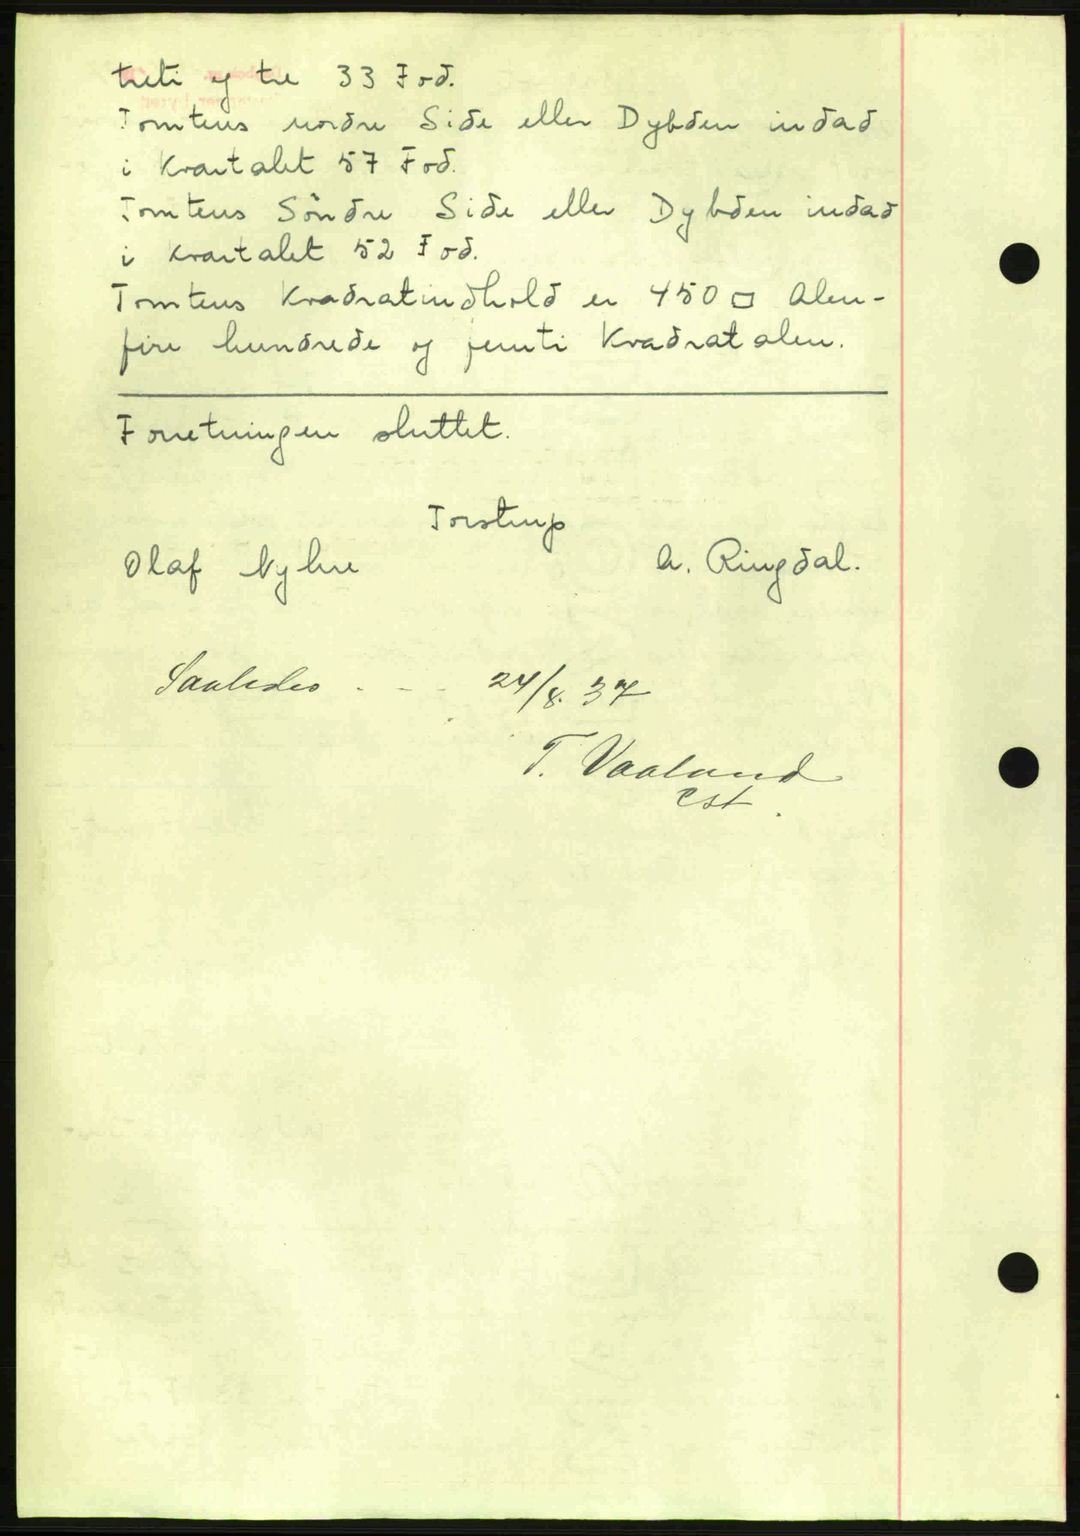 treti og tre 33 Fod.
Tomtens nordre Side eller Dybden indad
i Kvartalet 57 Fod.
Tomtens Söndre Side eller Dybden indad
i Kvartalet 52 Fod.
Tomtens Kvadratindhold er 450 □ Alen-
fire hundrede og femti Kvadratalen.
Forretningen sluttet.
Torstrup
Olaf Nyhre A. Ringdal.
Saaledes - - - 24/8. 37
T. Vaaland
cst.